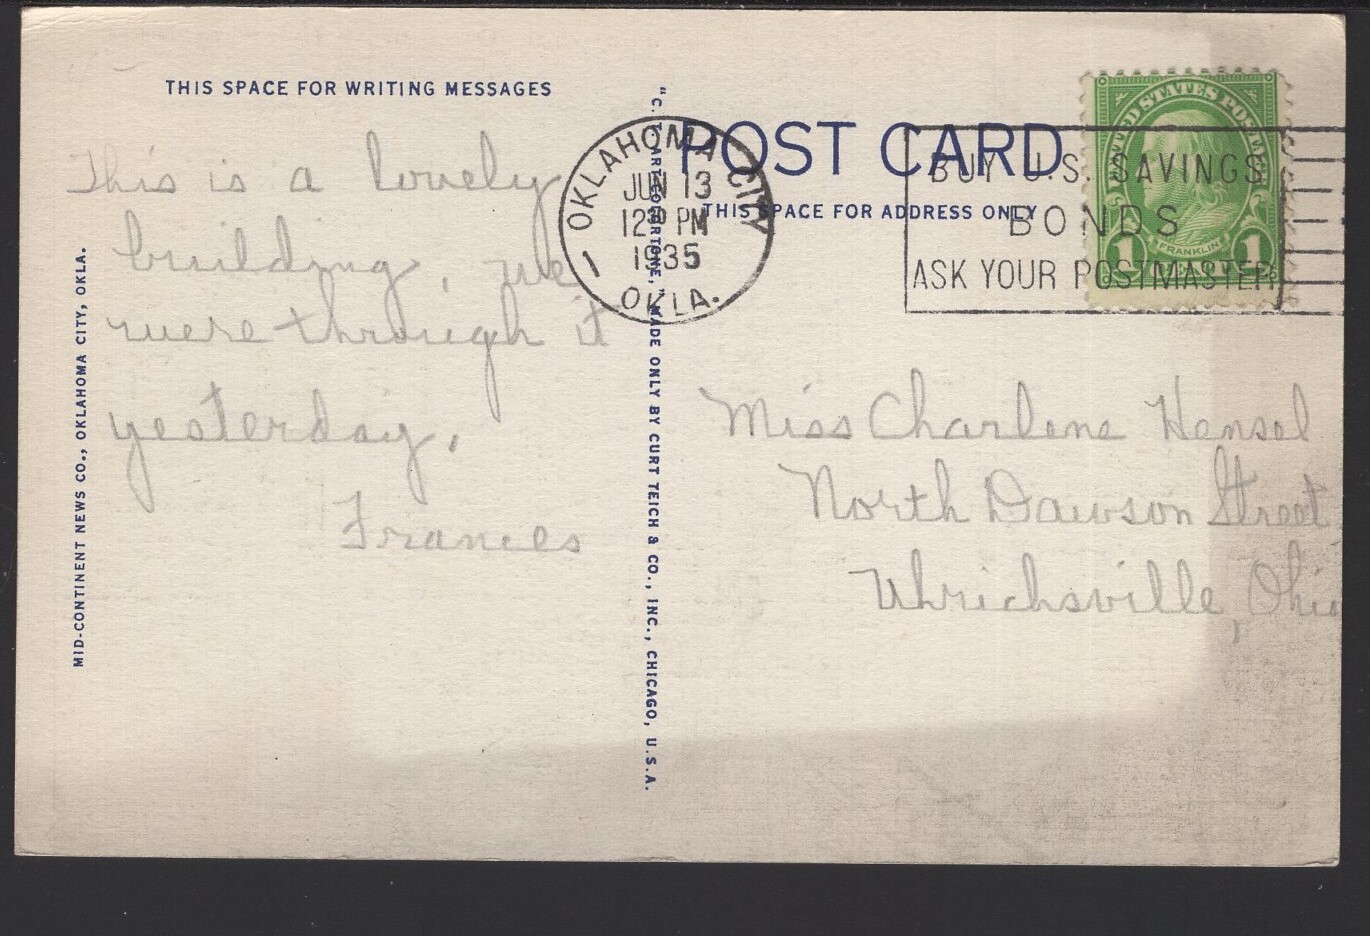 THIS SPACE FOR WRITING MESSAGES
This is a lovely
building, we
were through it
yesterday.
Frances
MID-CONTINENT NEWS CO., OKLAHOMA CITY, OKLA.
"C. T. ART-COLORTONE," MADE ONLY BY CURT TEICH & CO., INC., CHICAGO, U.S.A.
OKLAHOMA CITY
JUN 13
12 30 PM
1935
1
OKLA.
POST CARD
THIS SPACE FOR ADDRESS ONLY
BUY U.S. SAVINGS
BONDS
ASK YOUR POSTMASTER
UNITED STATES POSTAGE
FRANKLIN
1 1
Miss Charlene Hensel
North Dawson Street
Uhrichsville, Ohio